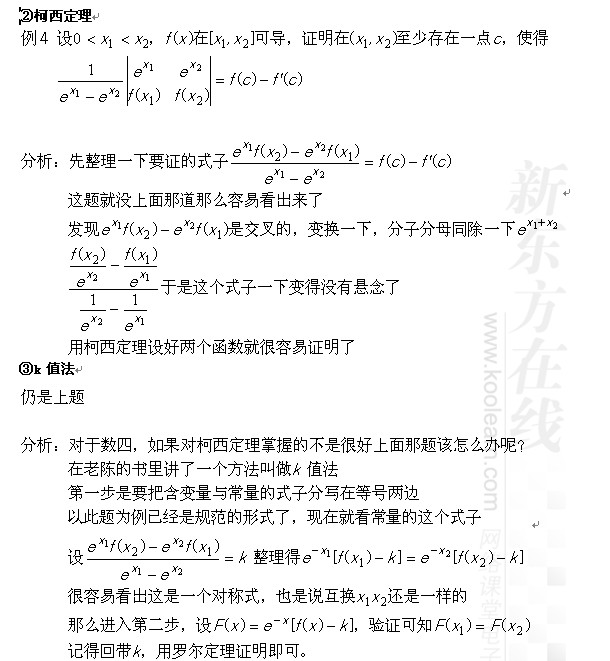 ②柯西定理
例4 设0 < x₁ < x₂，f(x)在[x₁, x₂]可导，证明在(x₁, x₂)至少存在一点c，使得
1/(e^x₁ − e^x₂) |e^x₁ e^x₂; f(x₁) f(x₂)| = f(c) − f′(c)
分析：先整理一下要证的式子 (e^x₁f(x₂) − e^x₂f(x₁))/(e^x₁ − e^x₂) = f(c) − f′(c)
这题就没上面那道那么容易看出来了
发现e^x₁f(x₂) − e^x₂f(x₁)是交叉的，变换一下，分子分母同除一下e^(x₁+x₂)
(f(x₂)/e^x₂ − f(x₁)/e^x₁)/(1/e^x₂ − 1/e^x₁) 于是这个式子一下变得没有悬念了
用柯西定理设好两个函数就很容易证明了
③k 值法
仍是上题
分析：对于数四，如果对柯西定理掌握的不是很好上面那题该怎么办呢？
在老陈的书里讲了一个方法叫做k 值法
第一步是要把含变量与常量的式子分写在等号两边
以此题为例已经是规范的形式了，现在就看常量的这个式子
设 (e^x₁f(x₂) − e^x₂f(x₁))/(e^x₁ − e^x₂) = k 整理得e^−x₁[f(x₁) − k] = e^−x₂[f(x₂) − k]
很容易看出这是一个对称式，也是说互换x₁x₂还是一样的
那么进入第二步，设F(x) = e^−x[f(x) − k]，验证可知F(x₁) = F(x₂)
记得回带k，用罗尔定理证明即可。
新东方在线
www.koolearn.com
网络课堂电子